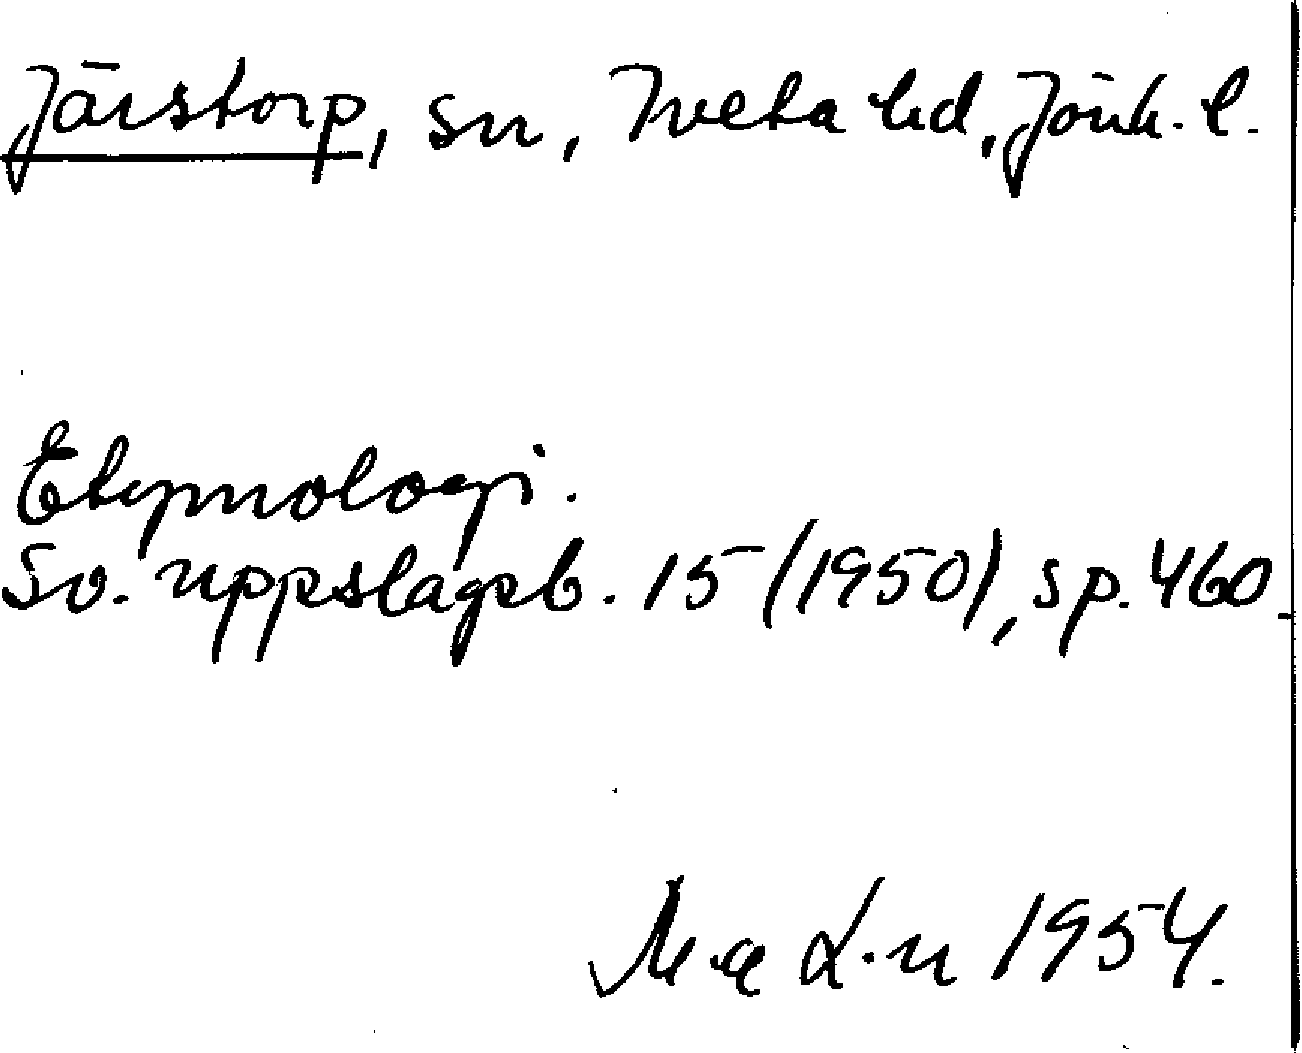 Järstorp, sn, Tveta hd, Jönk. l.
Etymologi.
Sv. uppslagsb. 15 (1950), sp. 460.
1954.